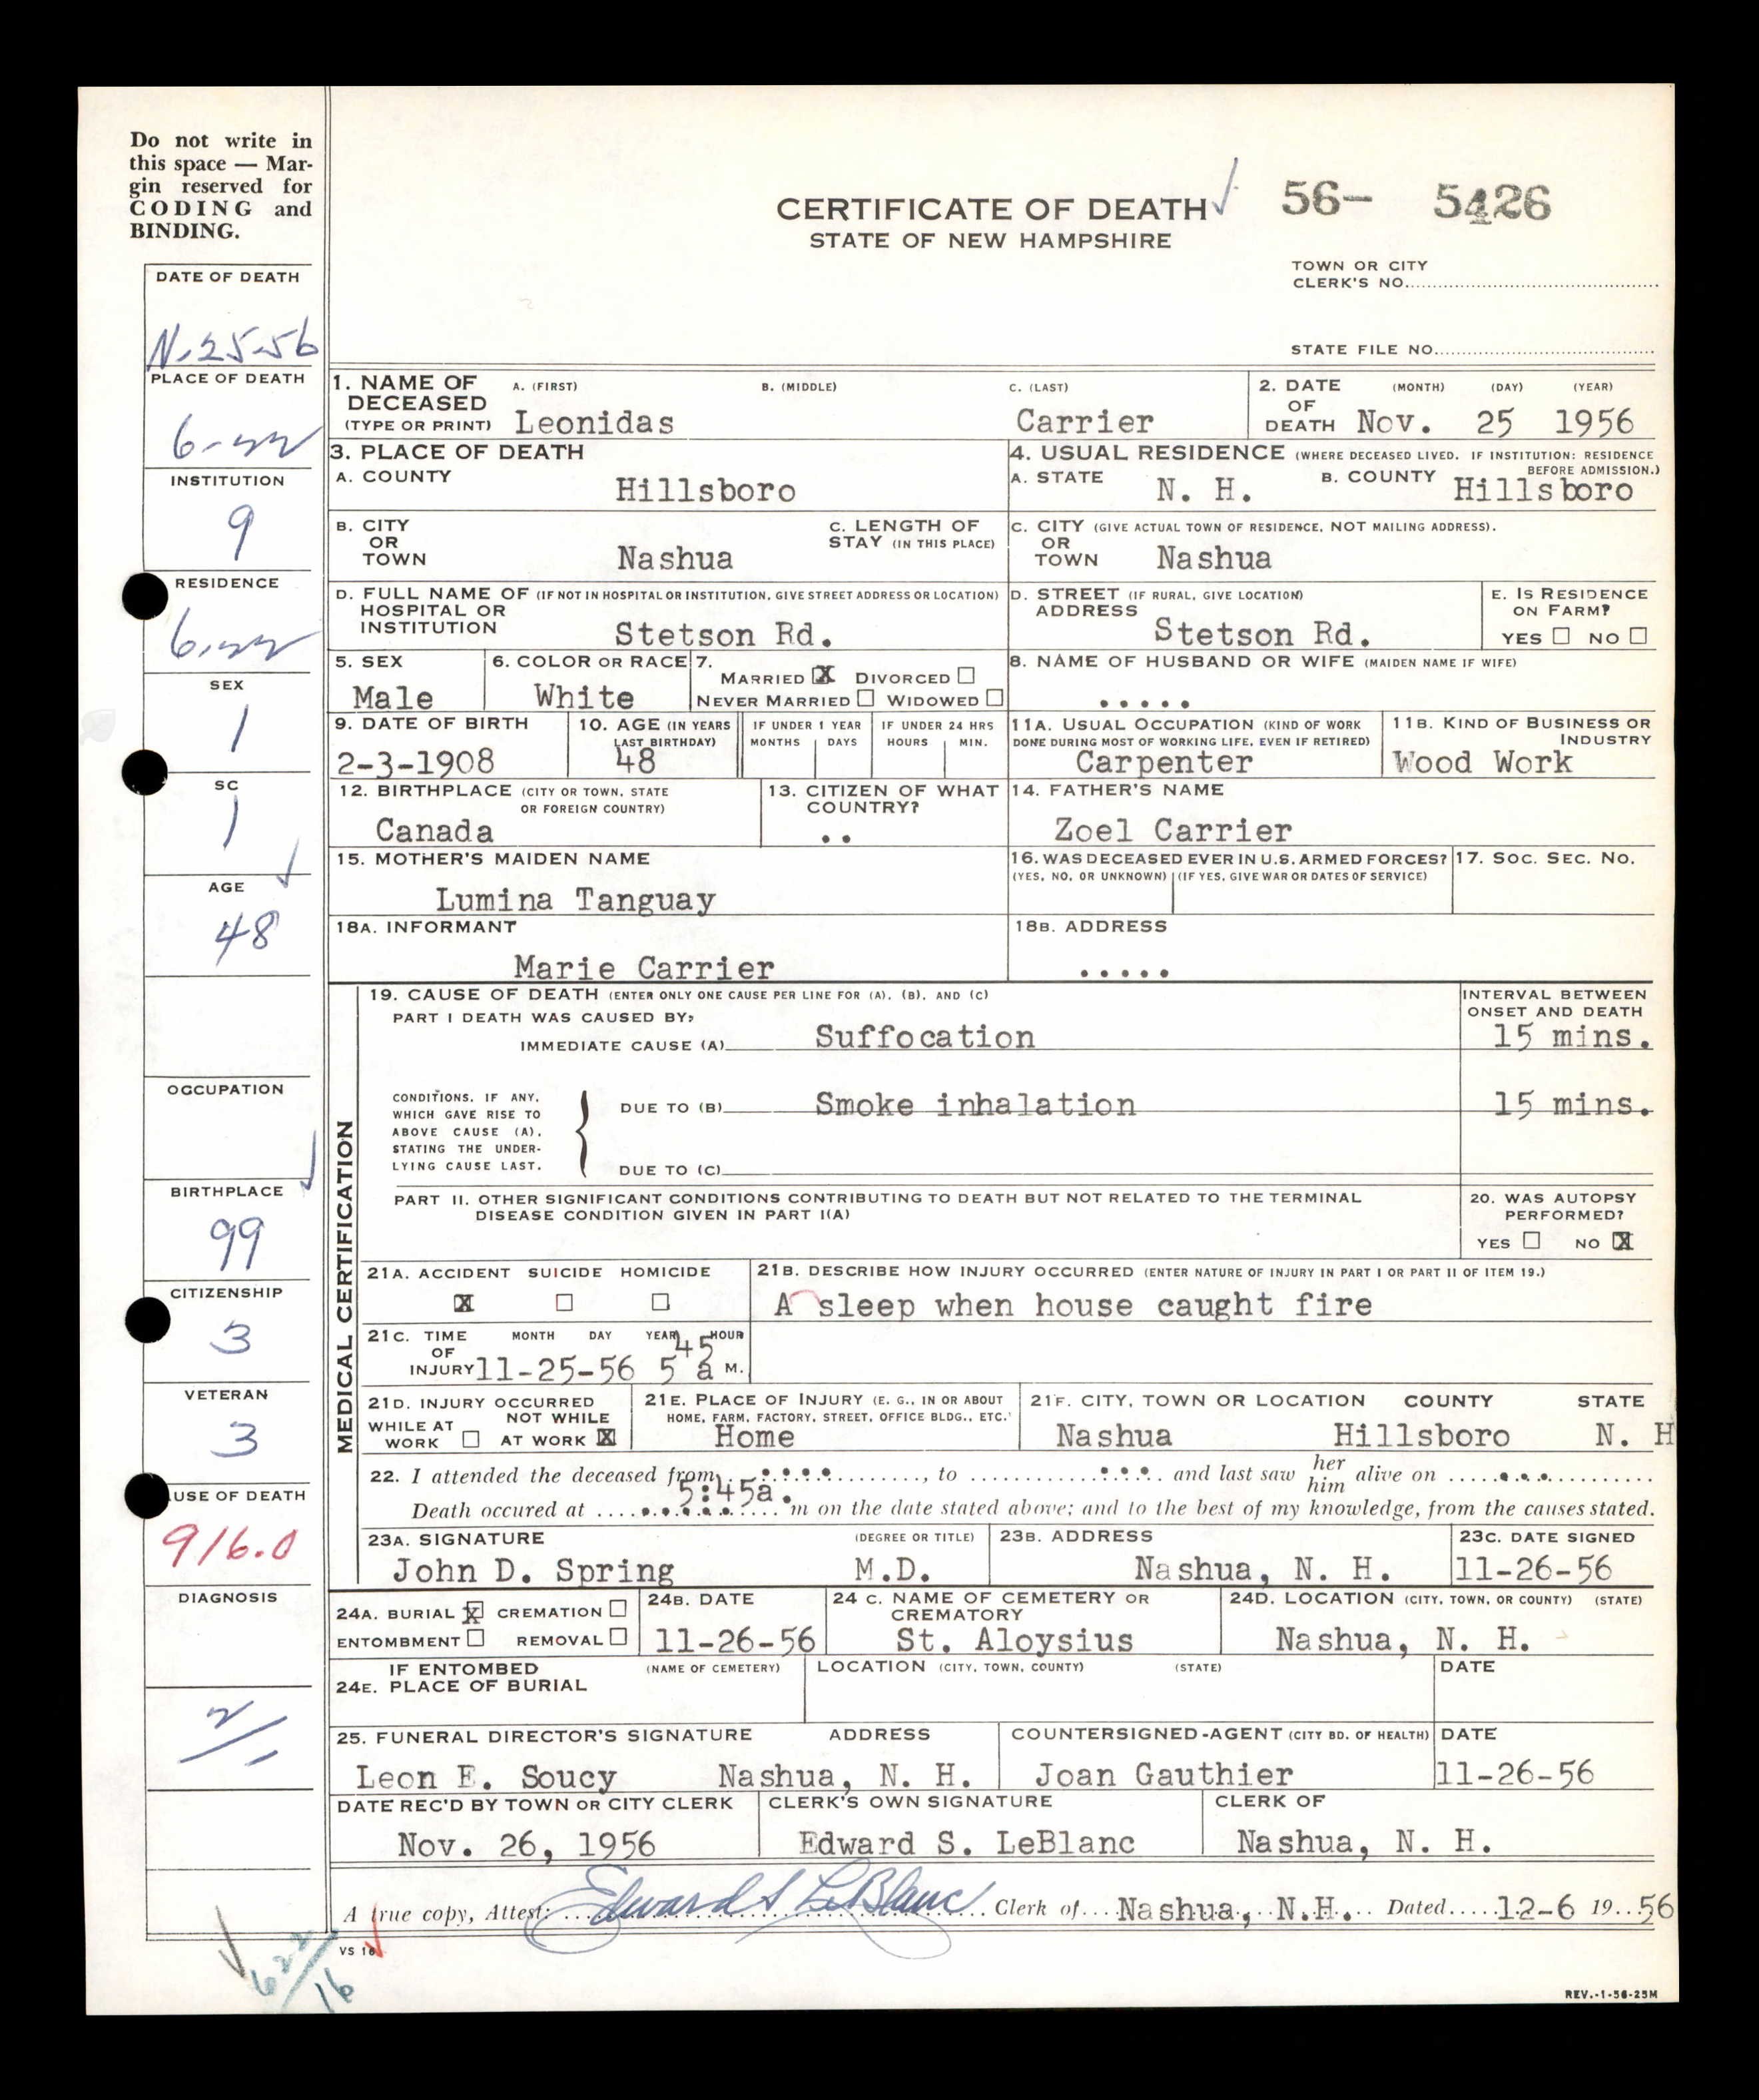 Do not write in
this space — Mar-
gin reserved for
CODING and
BINDING.
CERTIFICATE OF DEATH
56- 5426
STATE OF NEW HAMPSHIRE
TOWN OR CITY
CLERK'S NO.
STATE FILE NO.
DATE OF DEATH
N-25-56
PLACE OF DEATH
6-22
INSTITUTION
9
RESIDENCE
6-22
SEX
1
SC
1
AGE
48
OCCUPATION
BIRTHPLACE
99
CITIZENSHIP
3
VETERAN
3
USE OF DEATH
916.0
DIAGNOSIS
1. NAME OF DECEASED (TYPE OR PRINT) A. (FIRST) B. (MIDDLE) C. (LAST)
Leonidas Carrier
2. DATE OF DEATH (MONTH) (DAY) (YEAR)
Nov. 25 1956
3. PLACE OF DEATH
A. COUNTY
Hillsboro
4. USUAL RESIDENCE (WHERE DECEASED LIVED. IF INSTITUTION: RESIDENCE
BEFORE ADMISSION.)
A. STATE N. H. B. COUNTY Hillsboro
B. CITY OR TOWN Nashua
C. LENGTH OF STAY (IN THIS PLACE)
C. CITY (GIVE ACTUAL TOWN OF RESIDENCE, NOT MAILING ADDRESS).
OR TOWN Nashua
D. FULL NAME OF (IF NOT IN HOSPITAL OR INSTITUTION, GIVE STREET ADDRESS OR LOCATION)
HOSPITAL OR
INSTITUTION Stetson Rd.
D. STREET (IF RURAL, GIVE LOCATION)
ADDRESS Stetson Rd.
E. IS RESIDENCE
ON FARM?
YES NO
5. SEX
Male
6. COLOR OR RACE
White
7.
MARRIED X DIVORCED
NEVER MARRIED WIDOWED
8. NAME OF HUSBAND OR WIFE (MAIDEN NAME IF WIFE)
.....
9. DATE OF BIRTH
2-3-1908
10. AGE (IN YEARS
LAST BIRTHDAY)
48
IF UNDER 1 YEAR
MONTHS DAYS
IF UNDER 24 HRS
HOURS MIN.
11A. USUAL OCCUPATION (KIND OF WORK
DONE DURING MOST OF WORKING LIFE, EVEN IF RETIRED)
Carpenter
11B. KIND OF BUSINESS OR
INDUSTRY
Wood Work
12. BIRTHPLACE (CITY OR TOWN, STATE
OR FOREIGN COUNTRY)
Canada
13. CITIZEN OF WHAT
COUNTRY?
..
14. FATHER'S NAME
Zoel Carrier
15. MOTHER'S MAIDEN NAME
Lumina Tanguay
16. WAS DECEASED EVER IN U.S. ARMED FORCES?
(YES, NO, OR UNKNOWN) (IF YES, GIVE WAR OR DATES OF SERVICE)
17. SOC. SEC. NO.
18A. INFORMANT
Marie Carrier
18B. ADDRESS
.....
MEDICAL CERTIFICATION
19. CAUSE OF DEATH (ENTER ONLY ONE CAUSE PER LINE FOR (A), (B), AND (C)
PART I DEATH WAS CAUSED BY:
INTERVAL BETWEEN
ONSET AND DEATH
IMMEDIATE CAUSE (A) Suffocation 15 mins.
CONDITIONS, IF ANY,
WHICH GAVE RISE TO
ABOVE CAUSE (A),
STATING THE UNDER-
LYING CAUSE LAST.
DUE TO (B) Smoke inhalation 15 mins.
DUE TO (C)
PART II. OTHER SIGNIFICANT CONDITIONS CONTRIBUTING TO DEATH BUT NOT RELATED TO THE TERMINAL
DISEASE CONDITION GIVEN IN PART I(A)
20. WAS AUTOPSY
PERFORMED?
YES NO X
21A. ACCIDENT SUICIDE HOMICIDE
X
21B. DESCRIBE HOW INJURY OCCURRED (ENTER NATURE OF INJURY IN PART I OR PART II OF ITEM 19.)
A sleep when house caught fire
21C. TIME OF INJURY MONTH DAY YEAR HOUR
11-25-56 5 45 a M.
21D. INJURY OCCURRED
WHILE AT WORK NOT WHILE AT WORK X
21E. PLACE OF INJURY (E. G., IN OR ABOUT
HOME, FARM, FACTORY, STREET, OFFICE BLDG., ETC.)
Home
21F. CITY, TOWN OR LOCATION COUNTY STATE
Nashua Hillsboro N. H
22. I attended the deceased from ...., to .... and last saw her him alive on ....
Death occured at 5:45a. m on the date stated above; and to the best of my knowledge, from the causes stated.
23A. SIGNATURE (DEGREE OR TITLE)
John D. Spring M.D.
23B. ADDRESS
Nashua, N. H.
23C. DATE SIGNED
11-26-56
24A. BURIAL X CREMATION
ENTOMBMENT REMOVAL
24B. DATE
11-26-56
24 C. NAME OF CEMETERY OR
CREMATORY
St. Aloysius
24D. LOCATION (CITY, TOWN, OR COUNTY) (STATE)
Nashua, N. H.
IF ENTOMBED (NAME OF CEMETERY) LOCATION (CITY, TOWN, COUNTY) (STATE) DATE
24E. PLACE OF BURIAL
25. FUNERAL DIRECTOR'S SIGNATURE ADDRESS
Leon E. Soucy Nashua, N. H.
COUNTERSIGNED-AGENT (CITY BD. OF HEALTH)
Joan Gauthier
DATE
11-26-56
DATE REC'D BY TOWN OR CITY CLERK
Nov. 26, 1956
CLERK'S OWN SIGNATURE
Edward S. LeBlanc
CLERK OF
Nashua, N. H.
A true copy, Attest: Edward S LeBlanc Clerk of Nashua, N.H. Dated 12-6 19 56
VS 16
622/16
REV.-1-56-25M